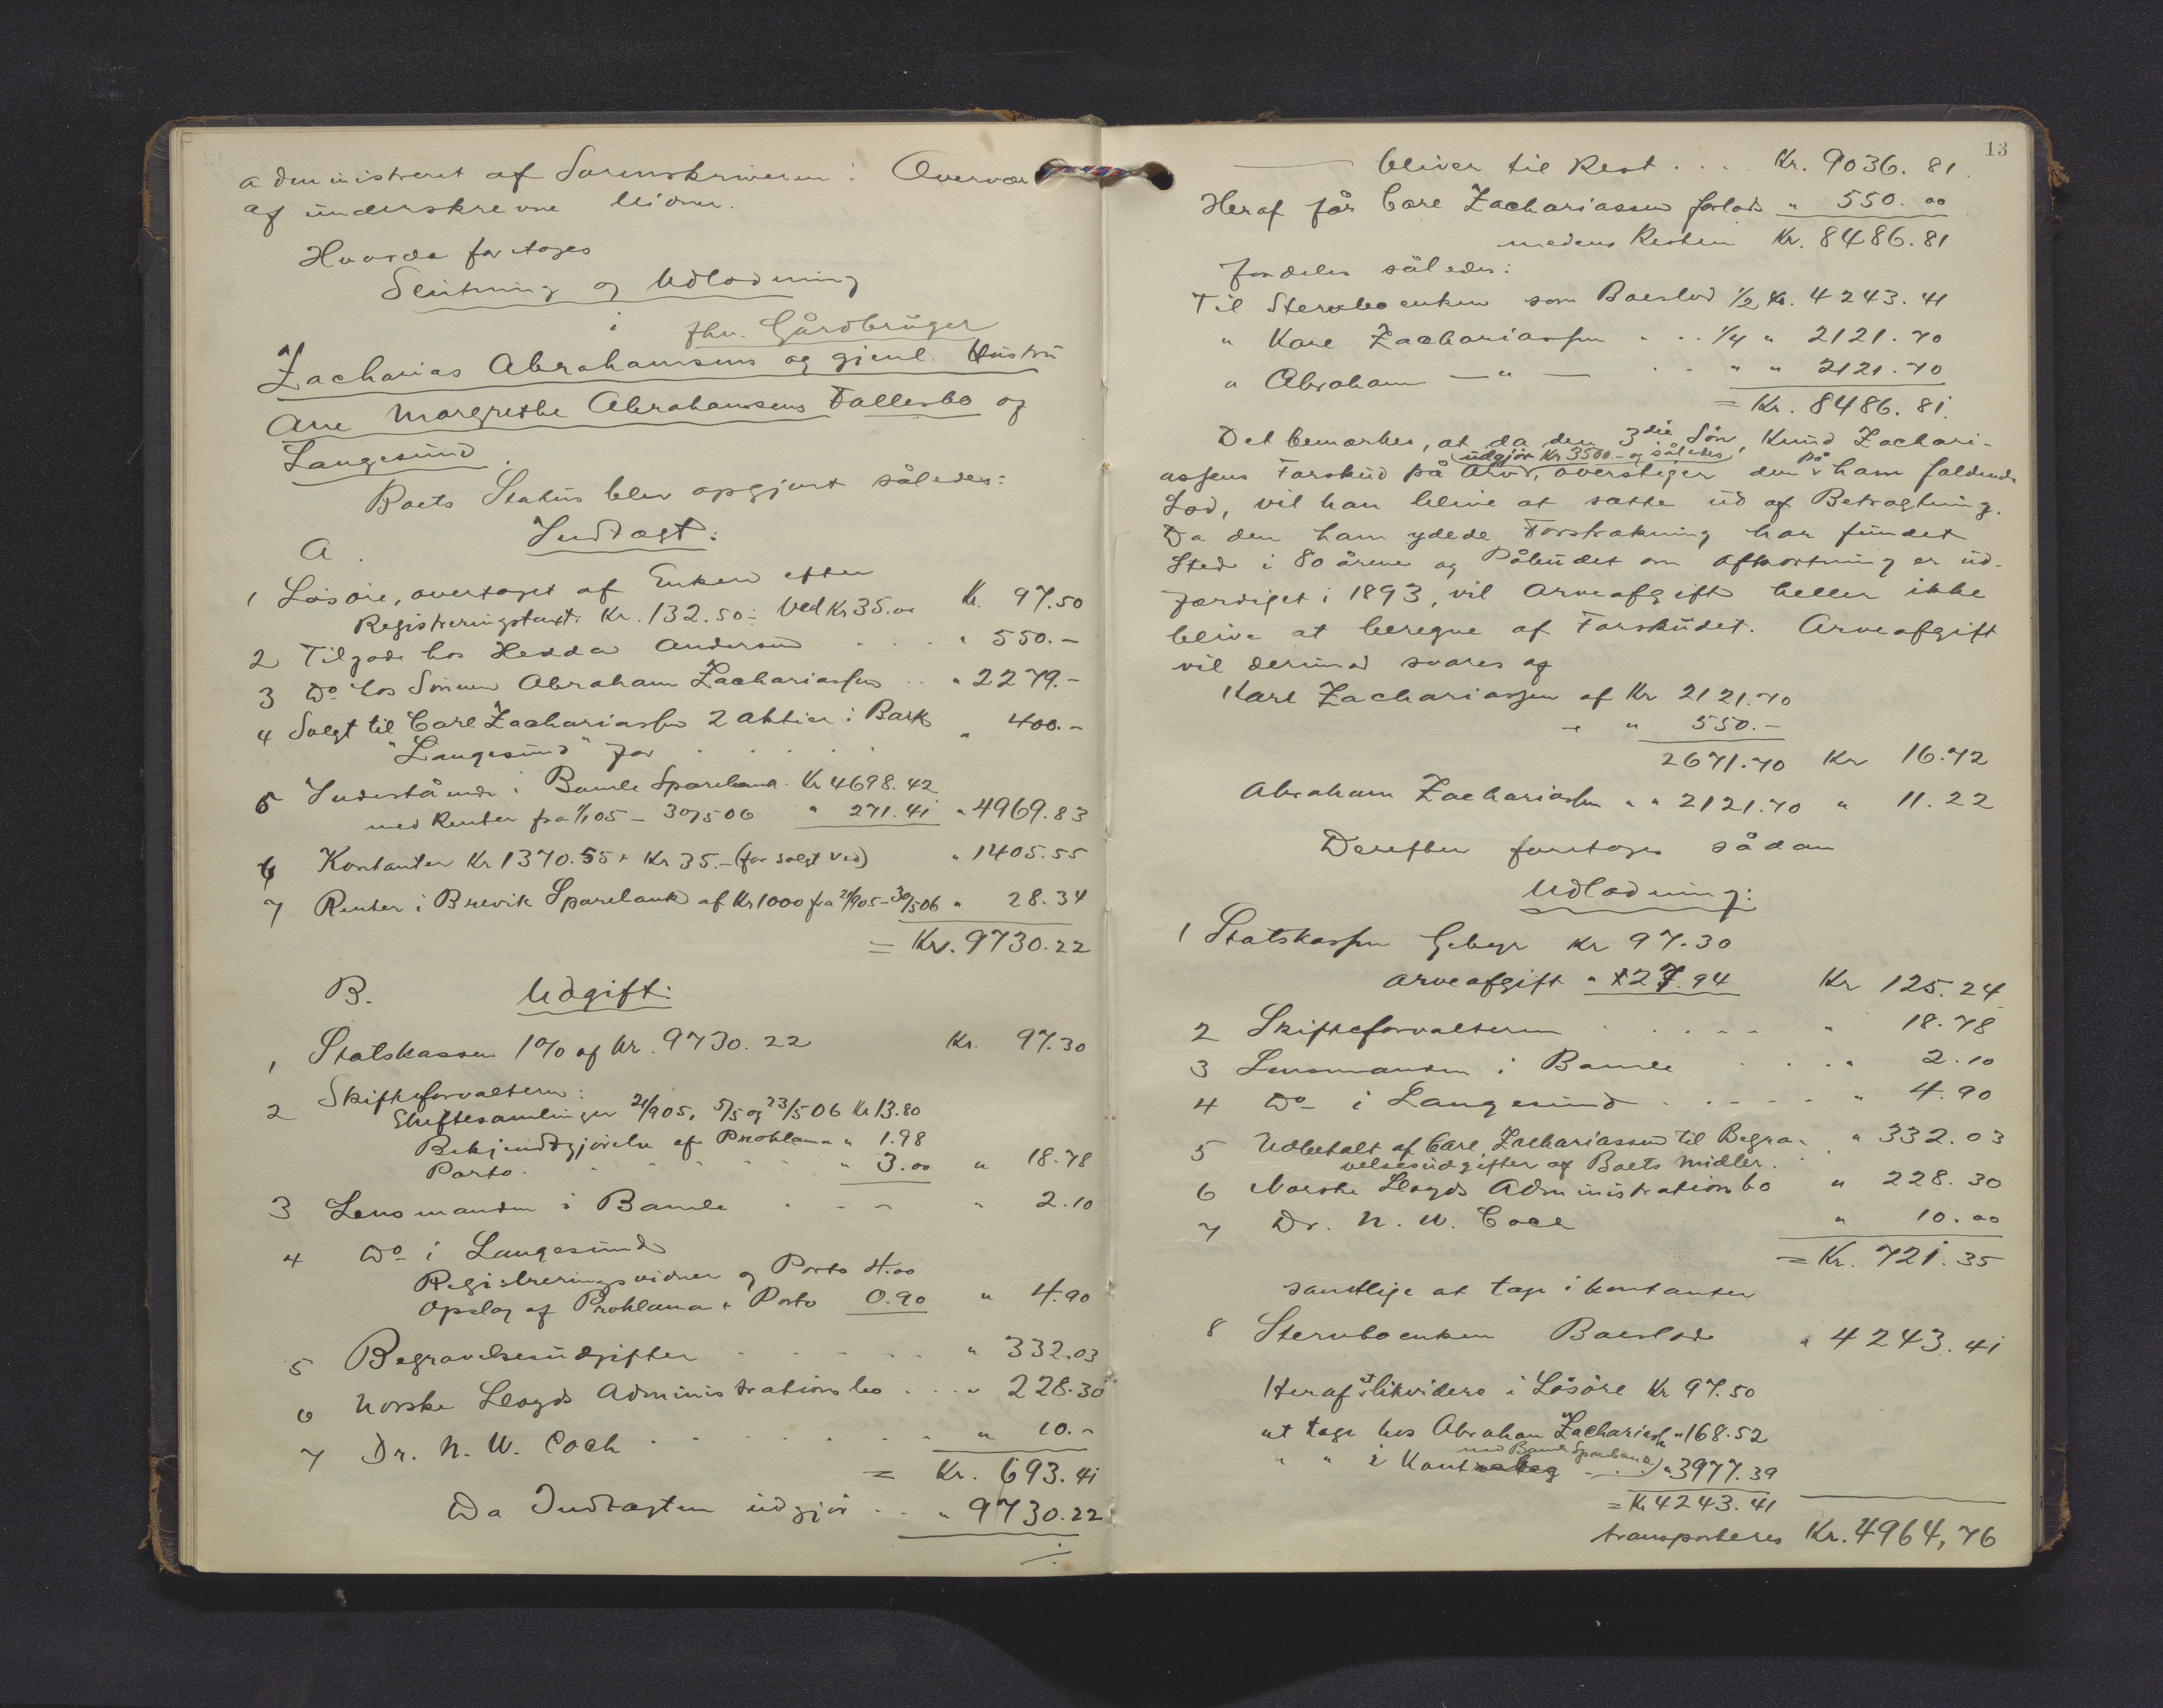 administreret af Sorenskriveren i Overvær
af underskrevne Vidner.
Hvorda foretoges
Slutning og Udlodning
i fhv. Gårdbruger
Zacharias Abrahamsens og gjenl. Hustru
Ane Margrethe Abrahamsens Fallesbo af
Langesund.
Boets Status blev opgjort således:
A. Indtægt:
1 Løsøre, overtaget af Enken efter
Registreringstaxt: Kr. 132.50 ÷ Ved Kr 35.00 Kr. 97.50
2 Tilgode hos Hedda Andersen . . . " 550.-
3 Do hos Sønnen Abraham Zachariassen . . " 2279.-
4 Solgt til Carl Zachariassen 2 aktier i Bark
"Langesund" for . . . . . " 400.-
5 Indestående i Bamle Sparebank. Kr 4698.42
med Renter fra 1/1 05 - 30/5 06 " 271.41 " 4969.83
6 Kontanter Kr 1370.55 + Kr 35.- (for solgt Ved) " 1405.55
7 Renter i Brevik Sparebank af Kr 1000 fra 21/9 05 - 30/5 06 " 28.34
= Kr. 9730.22
B. Udgift:
1 Statskassen 1% af Kr. 9730.22 Kr. 97.30
2 Skifteforvalteren:
Skiftesamlinger 21/9 05, 5/5 og 23/5 06 Kr 13.80
Bekjendtgjørelse af Proklama " 1.98
Porto . . . . . . " 3.00 " 18.78
3 Lensmanden i Bamle . . . " 2.10
4 Do i Langesund
Registreringsvidner og Porto 4.00
Opslag af Proklama + Porto 0.90 " 4.90
5 Begravelsesudgifter . . . . . " 332.03
6 Norske Lloyds Administrationsbo . . . " 228.30
7 Dr. N. W. Coch . . . . . . " 10.-
= Kr. 693.41
Da Indtægten udgjør . . " 9730.22
./.
13
bliver til Rest . . . Kr. 9036.81
Heraf får Carl Zachariassen forlods " 550.00
medens Resten Kr. 8486.81
fordeles således:
Til Stervboenken som Boeslod 1/2 Kr. 4243.41
" Karl Zachariassen . . . 1/4 " 2121.70
" Abraham — " — . . " " 2121.70
= Kr. 8486.81
Det bemærkes, at da den 3die Søn, Knud Zachari-
udgjør Kr 3500.- og således
assens Forskud på Arv, overstiger den på ham faldende
Lod, vil han blive at sætte ud af Betragtning.
Da den ham ydede Forstrækning har fundet
Sted i 80 årene og Påbudet om Afkortning er ud-
færdiget i 1893, vil Arveafgift heller ikke
blive at beregne af Forskudet. Arveafgift
vil derimod svares af
Karl Zachariassen af Kr 2121.70
+ " 550.-
2671.70 Kr 16.72
Abraham Zachariassen " " 2121.70 " 11.22
Derefter foretoges sådan
Udlodning:
1 Statskassen Gebyr Kr 97.30
Arveafgift " 27.94 Kr 125.24
2 Skifteforvalteren . . . . . " 18.78
3 Lensmanden i Bamle . . . " 2.10
4 Do i Langesund . . . . . " 4.90
5 Udbetalt af Carl Zachariassen til Begra- " 332.03
velsesudgifter af Boets Midler.
6 Norske Lloyds Administrationsbo " 228.30
7 Dr. N. W. Coch " 10.00
= Kr. 721.35
samtlige at tage i kontanter
8 Stervboenken Boeslod " 4243.41
Heraf at likvidere i Løsøre Kr 97.50
at tage hos Abraham Zachariassen " 168.52
med Bamle Sparebank)
" " i Kont " 3977.39
= Kr 4243.41
transporteres Kr. 4964,76